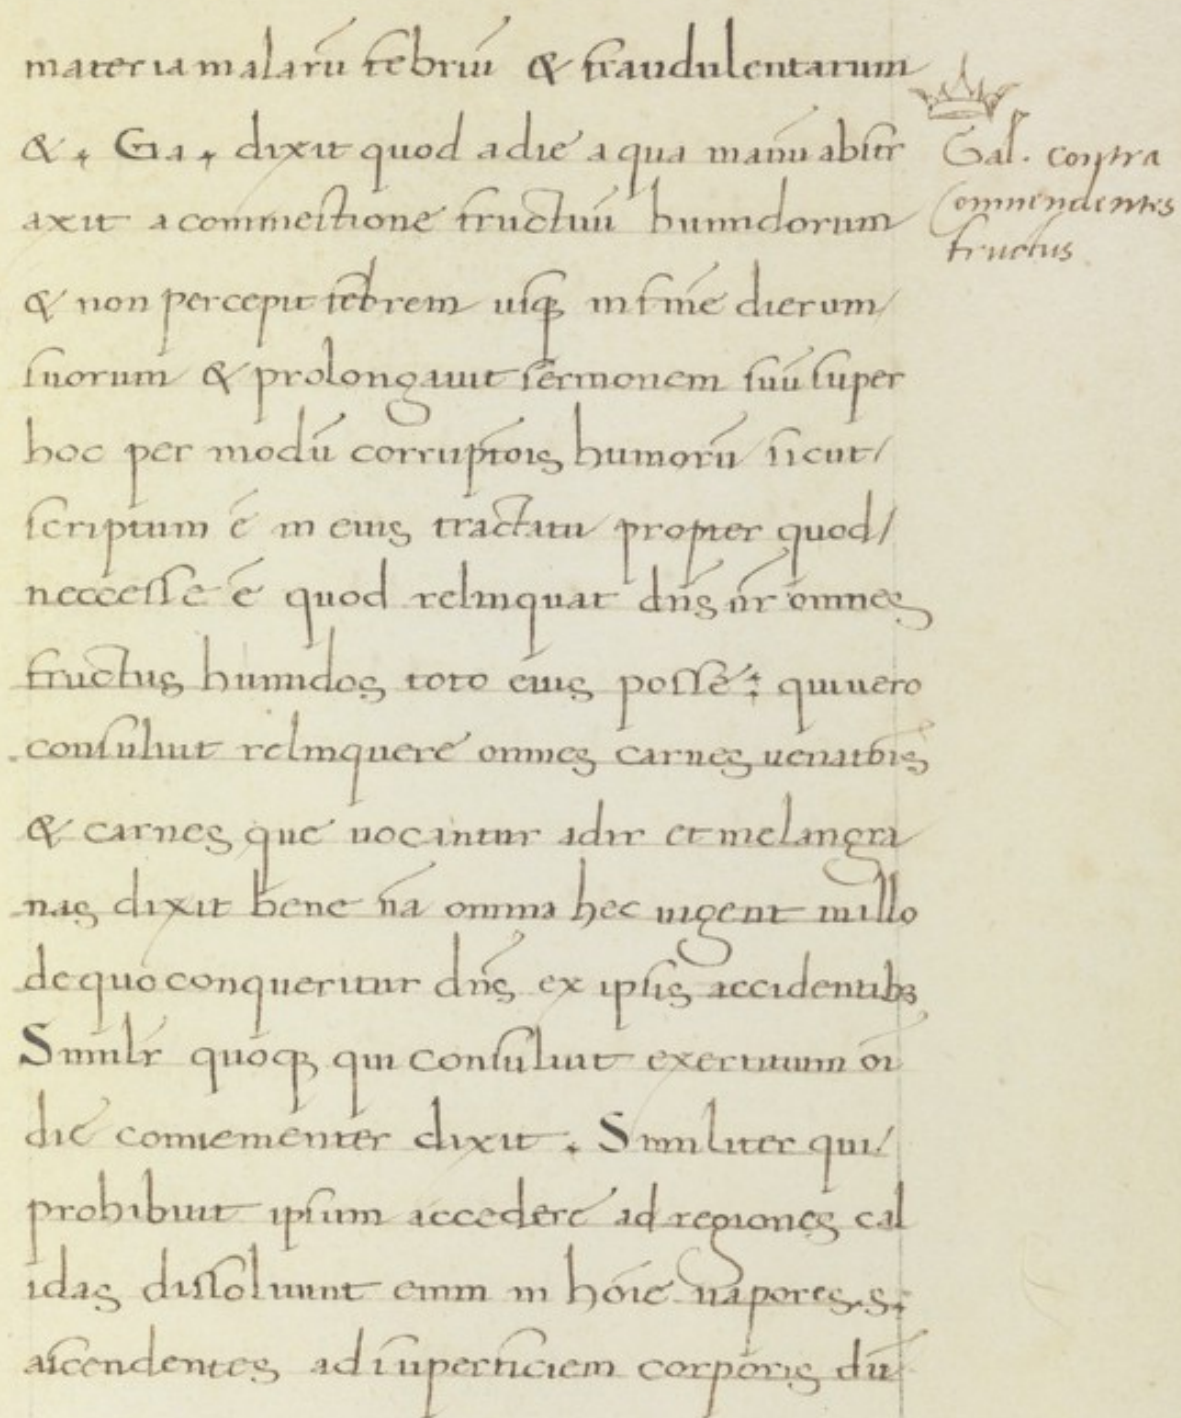 materia malarū febriū & fraudulentarum
& . Ga . dixit quod a die a qua manū abstr
axit a commestione fructuū humidorum
& non percepit febrem usq in fine dierum
suorum & prolongauit sermonem suū super
hoc per modū corruptōis humorū sicut
scriptum ē in eius tractatu propter quod
neccesse ē quod relinquat dn̄s nr̄ omnes
fructus humidos toto eius posse : qui uero
consuluit relinquere omnes carnes uenatōis
& carnes que uocantur adir et melangia
nas dixit bene nā omnia hec uigent in illo
de quo conqueritur dn̄s ex ipsis accidentibꝫ
Similr̄ quoq qui consuluit exercitium oī
die conuenienter dixit . Similiter qui
prohibuit ipsum accedere ad regiones cal
idas dissoluunt enim in hōie uapores .s.
ascendentes ad superficiem corporis dū
Gal. contra
Commendentes
fructus